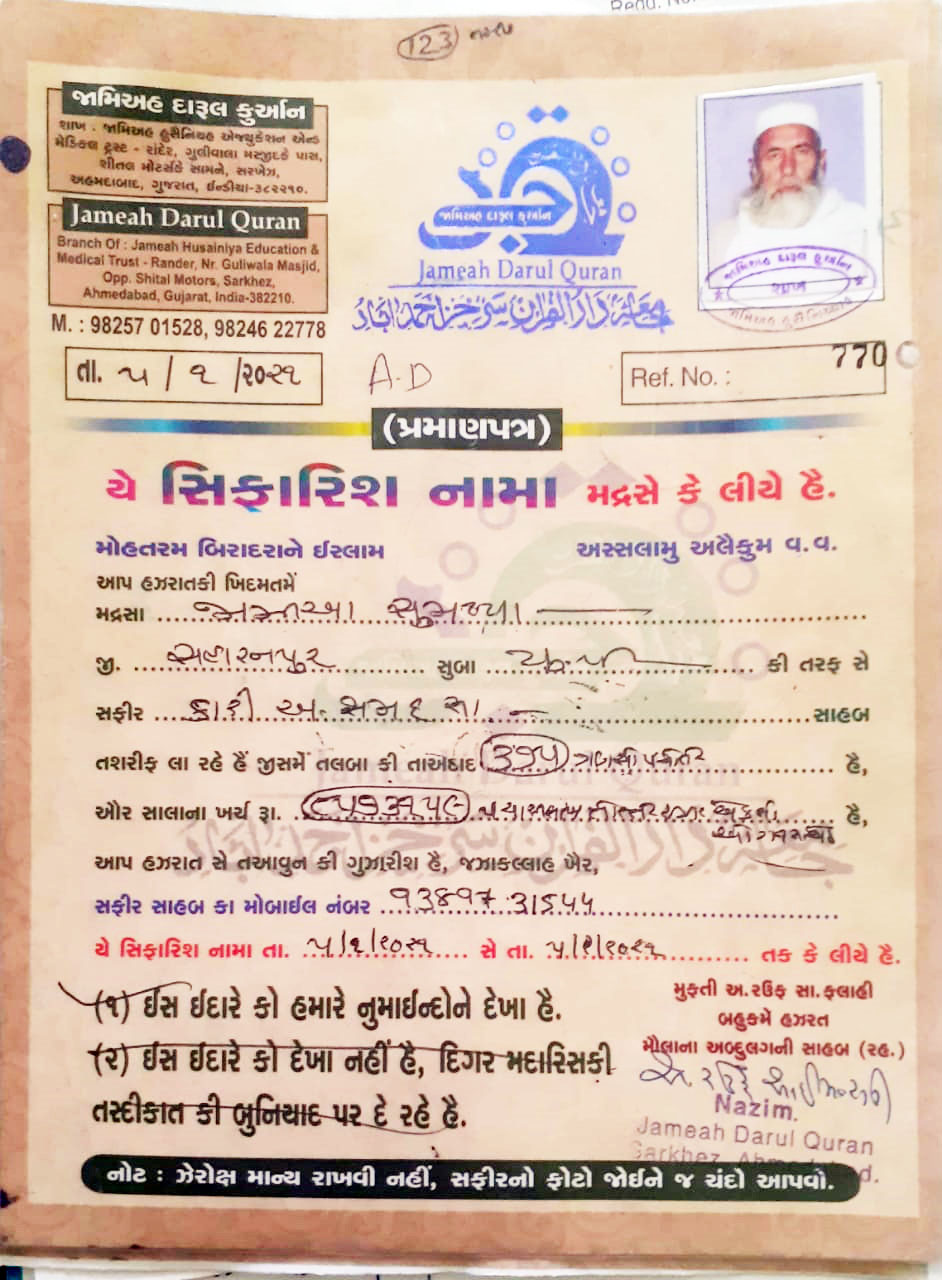 Regd. No.
123
જામિઅહ દારૂલ કુર્આન
શાખ : જામિઅહ હુસૈનિયહ એજ્યુકેશન એન્ડ
મેડિકલ ટ્રસ્ટ - રાંદેર, ગુલીવાલા મસ્જીદકે પાસ,
શીતલ મોટર્સકે સામને, સરખેઝ,
અહમદાબાદ, ગુજરાત, ઈન્ડીયા-૩૮૨૨૧૦.
Jameah Darul Quran
Branch Of : Jameah Husainiya Education &
Medical Trust - Rander, Nr. Guliwala Masjid,
Opp. Shital Motors, Sarkhez,
Ahmedabad, Gujarat, India-382210.
M. : 98257 01528, 98246 22778
જામિઅહ દારૂલ કુર્આન
Jameah Darul Quran
جامعہ دار القرآن سرخیز احمد آباد
જામિઅહ દારૂલ કુર્આન
તા. ૫ / ૨ /૨૦૨૧
A.D
Ref. No. : 770
(પ્રમાણપત્ર)
યે સિફારિશ નામા મદ્રસે કે લીયે હૈ.
મોહતરમ બિરાદરાને ઈસ્લામ અસ્સલામુ અલૈકુમ વ.વ.
આપ હઝરાતકી ખિદમતમેં
મદ્રસા જામીઆ સુમય્યા
જી. સહારનપુર સુબા યુ.પી કી તરફ સે
સફીર કારી અ. સમદ સા. સાહબ
તશરીફ લા રહે હૈં જીસમેં તલબા કી તાઅદાદ ૩૭૫ હૈ,
ઔર સાલાના ખર્ચ રૂા. હૈ,
આપ હઝરાત સે તઆવુન કી ગુઝારીશ હૈ, જઝાકલ્લાહ ખૈર,
સફીર સાહબ કા મોબાઈલ નંબર
યે સિફારિશ નામા તા. સે તા. તક કે લીયે હૈ.
(૧) ઈસ ઈદારે કો હમારે નુમાઈન્દોને દેખા હૈ.
(૨) ઈસ ઈદારે કો દેખા નહીં હૈ, દિગર મદારિસકી
તસ્દીકાત કી બુનિયાદ પર દે રહે હૈ.
મુફતી અ.રઉફ સા.ફલાહી
બહુકમે હઝરત
મૌલાના અબ્દુલગની સાહબ (રહ.)
Nazim.
Jameah Darul Quran
Sarkhez, Ahmedabad.
નોટ : ઝેરોક્ષ માન્ય રાખવી નહીં, સફીરનો ફોટો જોઈને જ ચંદો આપવો.